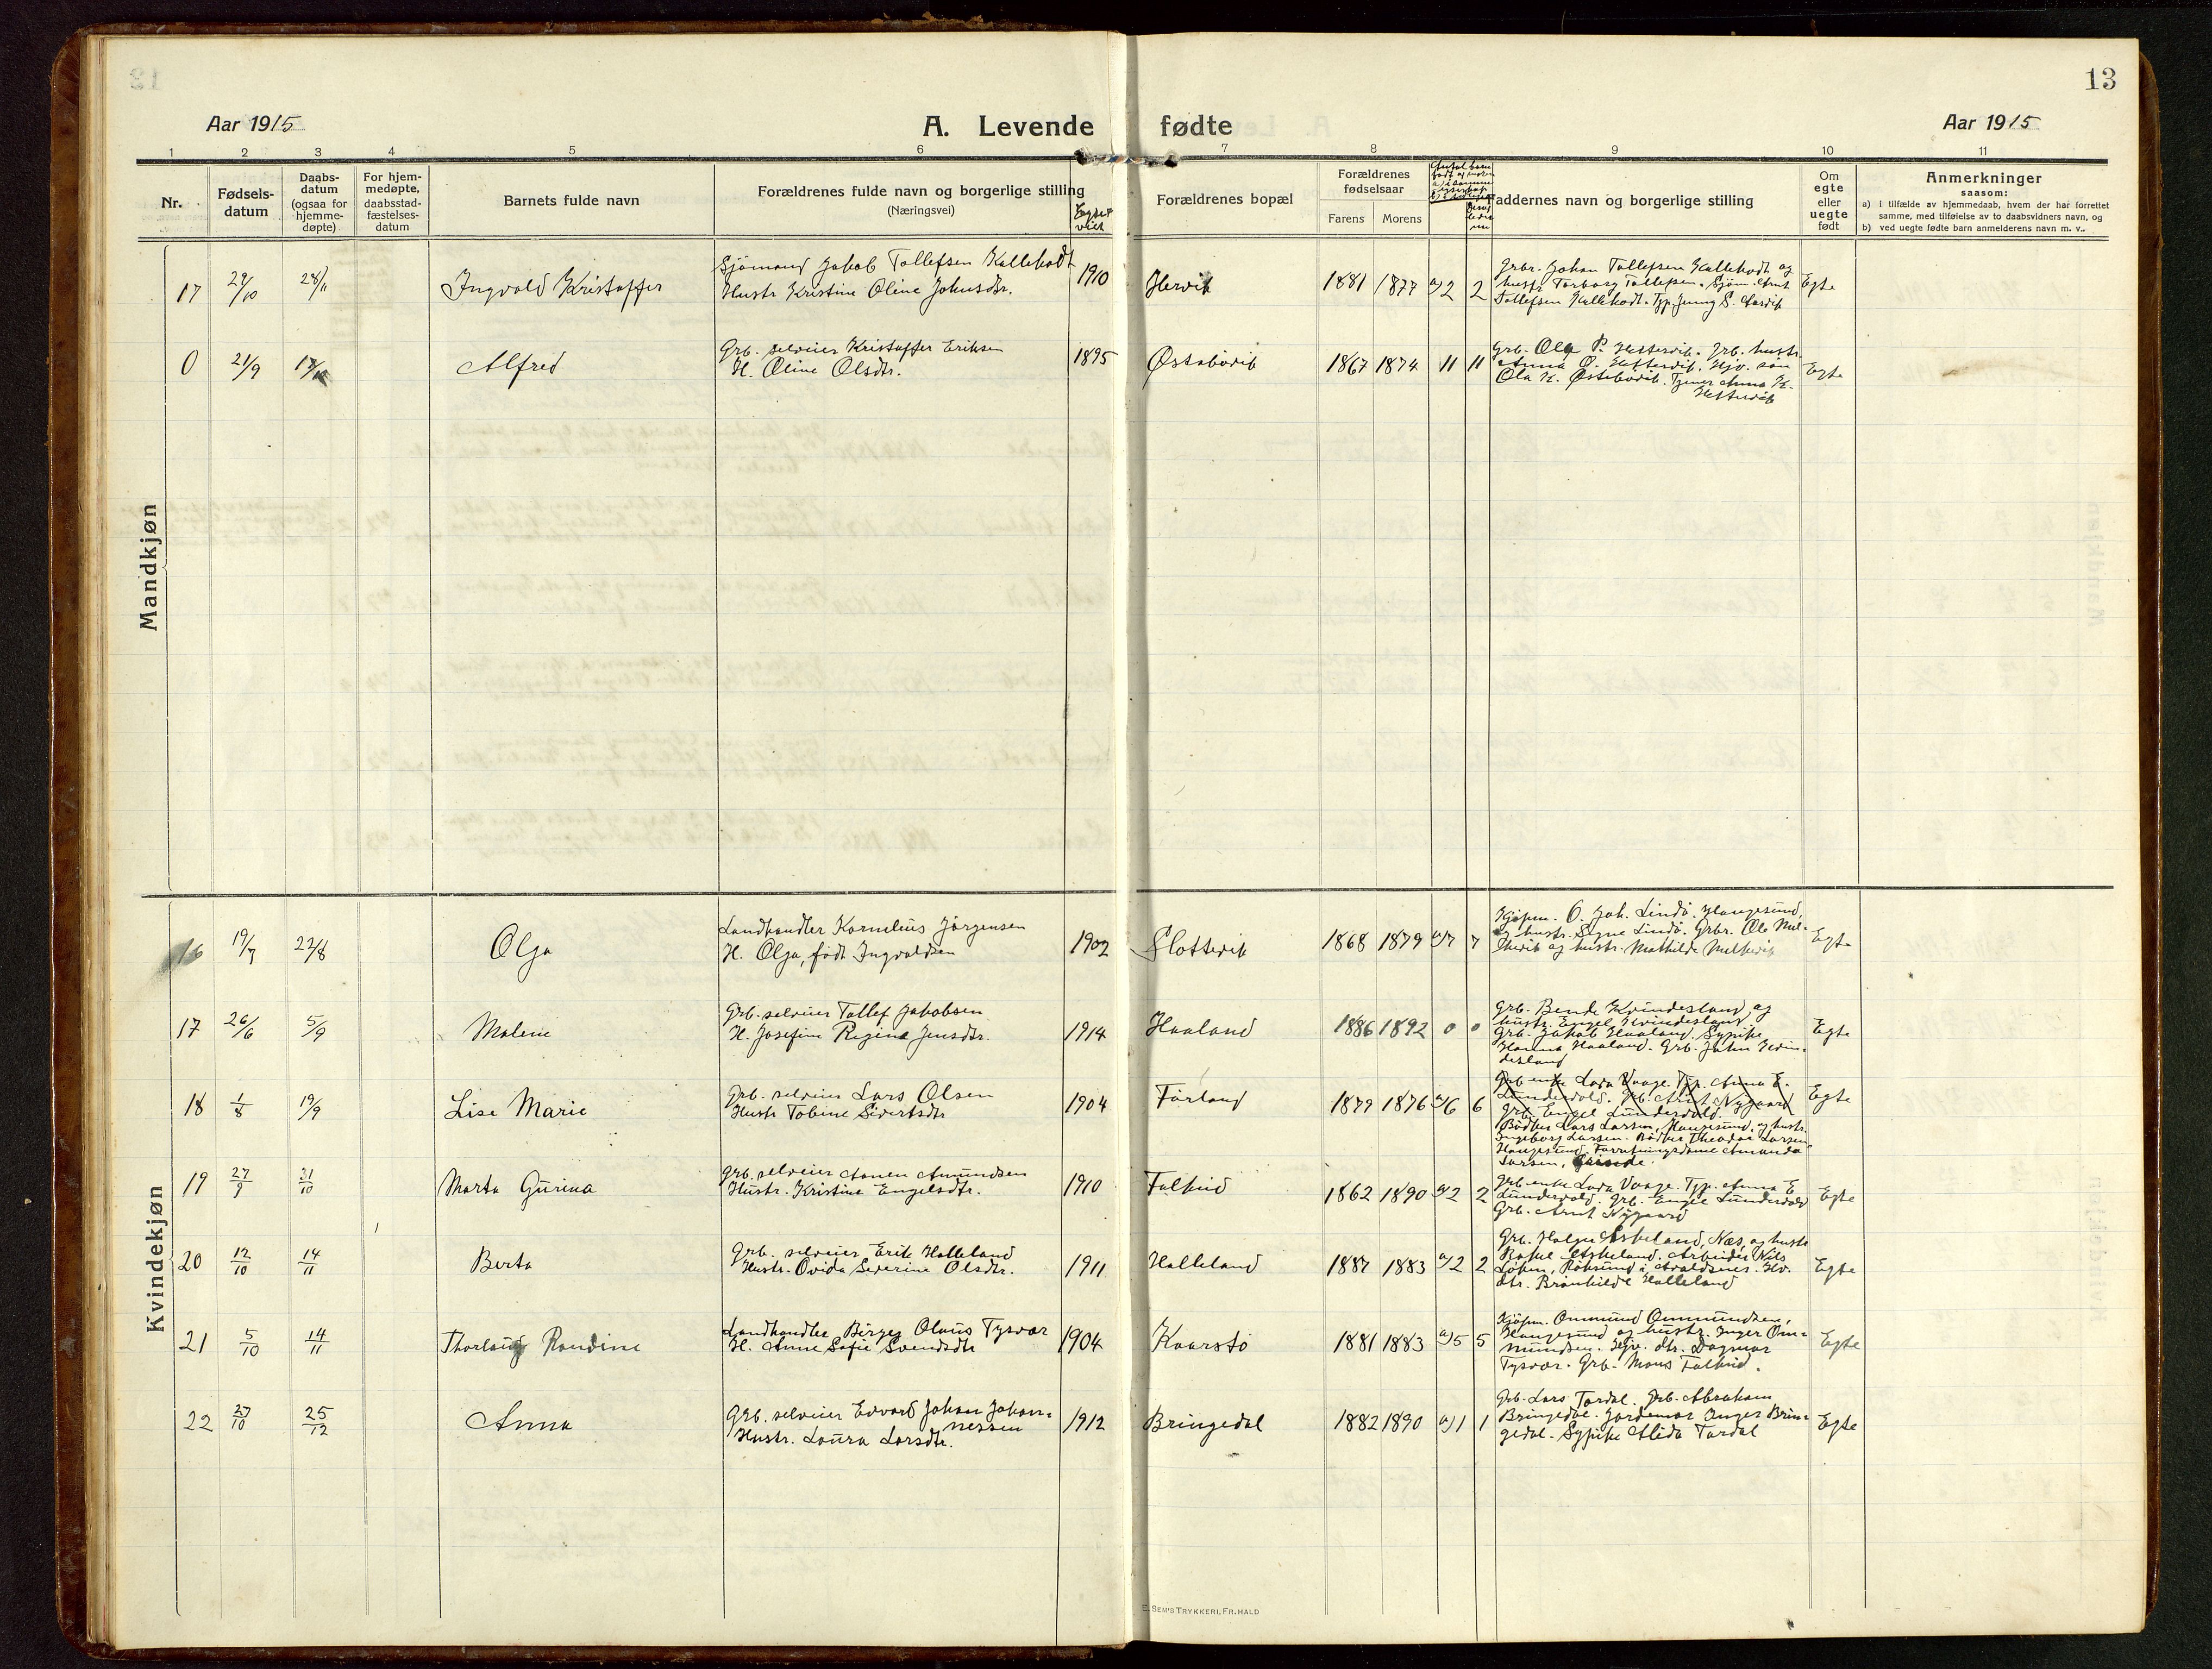 13
Aar 1915
A. Levende fødte
Aar 1915
1 2 3 4 5 6 7 8 9 10 11
Nr.
Fødsels-
datum
Daabs-
datum
(ogsaa for
hjemme-
døpte)
For hjem-
medøpte,
daabsstad-
fæstelses-
datum
Barnets fulde navn
Forældrenes fulde navn og borgerlige stilling
(Næringsvei)
Forældrenes bopæl
Forældrenes
fødselsaar
Farens Morens
Faddernes navn og borgerlige stilling
Om
egte
eller
uegte
født
Anmerkninger
saasom:
a) I tilfælde av hjemmedaab, hvem der har forrettet
samme, med tilføielse av to daabsvidners navn, og
b) ved uegte fødte barn anmelderens navn m. v..
Mandkjøn
17 29/10 28/11 Ingvald Kristoffer
Sjömand Jakob Tollefsen Kallekodt
Hustr Kristine Oline Johnsdtr.
1910 Hervik 1881 1877 a/2 2
Grbr. Johan Tollefsen Kallekodt og
hustr Torborg Tollefsen. Sjöm. Arnt
Tollefsen Kallekodt.
Egte
0 21/9 Alfred
Grb. selveier Kristoffer Eriksen
H. Oline Olsdtr.
1895 Østebövik 1867 1874 11 11
Grb. Ola P. Hettervik. Grb. hustr.
Anna O. Hettervik. Hjv. søn
Ola K. Østebövik. Tjener Anna K.
Hettervik
Egte
Kvindekjøn
16 19/7 22/8 Olga
Landhandler Kornelius Jörgensen
H. Olga, født Ingvaldsen
1902 Slottevik 1868 1879 a/7 7
Kjöpm. O. Joh. Lindö. Haugesund,
og hustr. Signe Lindö. Grbr. Ola Mel-
kevik og hustr. Mathilde Melkevik
Egte
17 26/6 5/9 Malene
Grb. selveier Tollef Jakobsen
H. Josefine Regine Jensdtr.
1914 Haaland 1886 1892 0 0
Grb. Bende Kvindesland og
hustr. Engel Kvindesland
Grb. Jakob Haaland. Sypike
Hanna Haaland. Grb. John Kvin-
desland
Egte
18 1/8 19/9 Lise Marie
Grb. selveier Lars Olsen
Hustr Tobine Sivertsdtr
1904 Förland 1879 1876 a/6 6
Grb. enke Lava Vaage. Tjp. Anna E.
Lundervold. Grb. Arnt Nygaard
Grb. Engel Lundervold.
Bödker Lars Larsen, Haugesund, og hustr.
Ingeborg Larsen. Bödker Theodor Larsen
Haugesund. Forretningsdame Amanda
Larsen, Grinde.
Egte
19 27/9 31/10 Marta Gurina
Grb. selveier Aanen Amundsen
Hustr. Kristine Engelsdtr.
1910 Falkeid 1862 1890 a/2 2
Grb enke Lava Vaage. Tjp. Anna E
Lundervold. Grb. Engel Lundervold
Grb. Arnt Nygaard
Egte
20 12/10 14/11 Berta
Grb. selveier Erik Halleland
Hustr. Ovida Severine Olsdtr.
1911 Halleland 1887 1883 a/2 2
Grb. Helge Askeland, Næs, og hustr
Rakel Askeland. Arbeider Nils
Røksund i Avaldsnes. Hv.
dtr. Brønhilde Halleland
Egte
21 5/10 14/11 Thorlaug Randine
Landhandler Birger Olaus Tysvær
H. Anne Sofie Svendsdtr
1904 Kaarstö 1881 1883 a/5 5
Kjöpm. Ommund Ommundsen,
Haugesund og hustr. Inger Om=
mundsen. Hjv. dtr. Dagmar
Tysvær. Grb. Mons Falkeid.
Egte
22 27/10 25/12 Anna
Grb. selveier Edvard Johan Johan=
nessen
Hustr. Laura Larsdtr.
1912 Bringedal 1882 1890 a/1 1
Grb. Lars Tordal. Grb. Abraham
Bringedal. Jordemor Inger Brin=
gedal. Sypike Alida Tordal
Egte
E. SEM'S TRYKKERI, FR. HALD